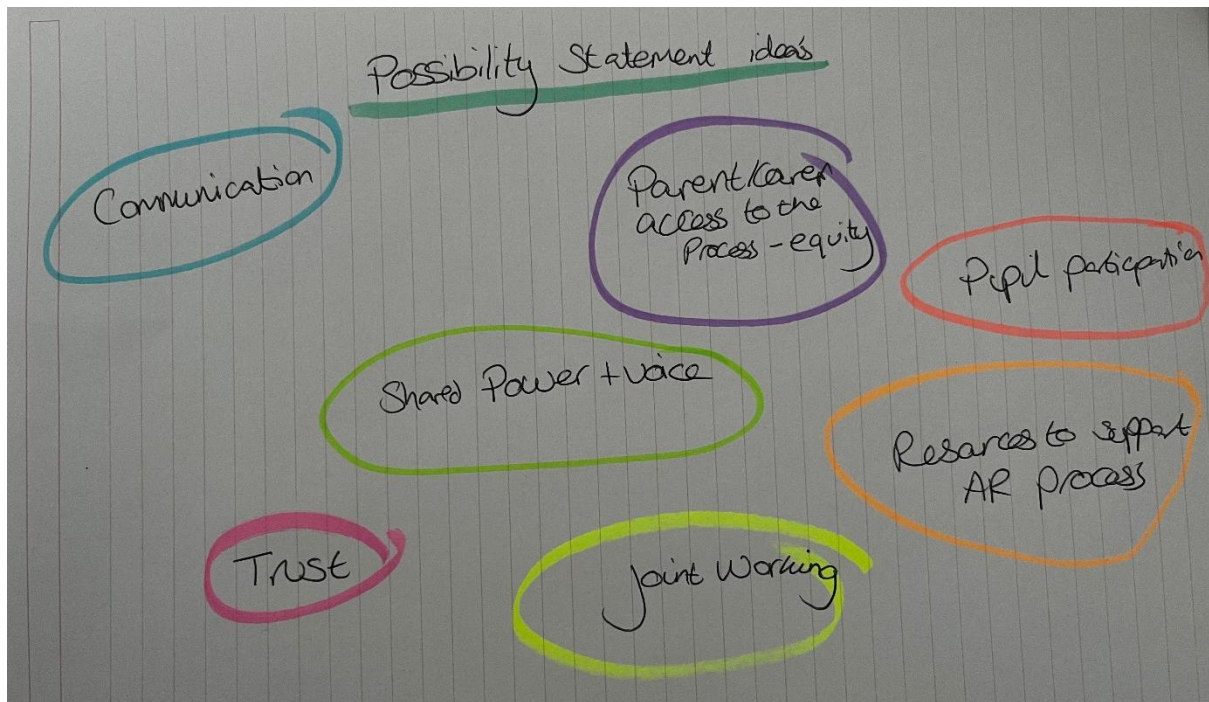 Possibility Statement ideas
Communication
Parent/carer
access to the
Process - equity
Pupil participation
Shared Power + voice
Resources to support
AR process
Trust
Joint Working